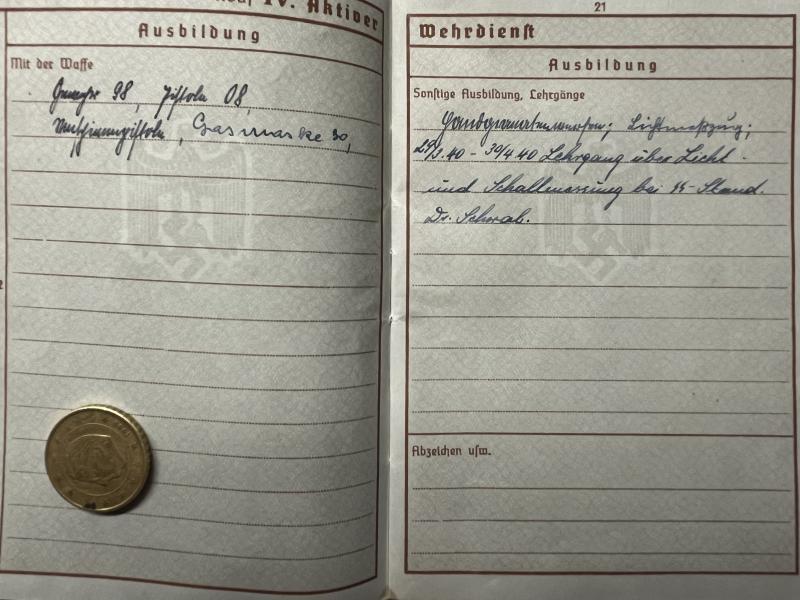 IV. Aktiver
Ausbildung
Mit der Waffe
Gewehr 98, Pistole 08,
Maschinenpistole, Gasmaske 30,
21
Wehrdienst
Ausbildung
Sonstige Ausbildung, Lehrgänge
Handgranatenwerfen; Lichtmeßzug;
29/3.40 - 30/4 40 Lehrgang über Licht-
und Schallmessung bei SS-Stand.
Dr. Schwab.
Abzeichen usw.